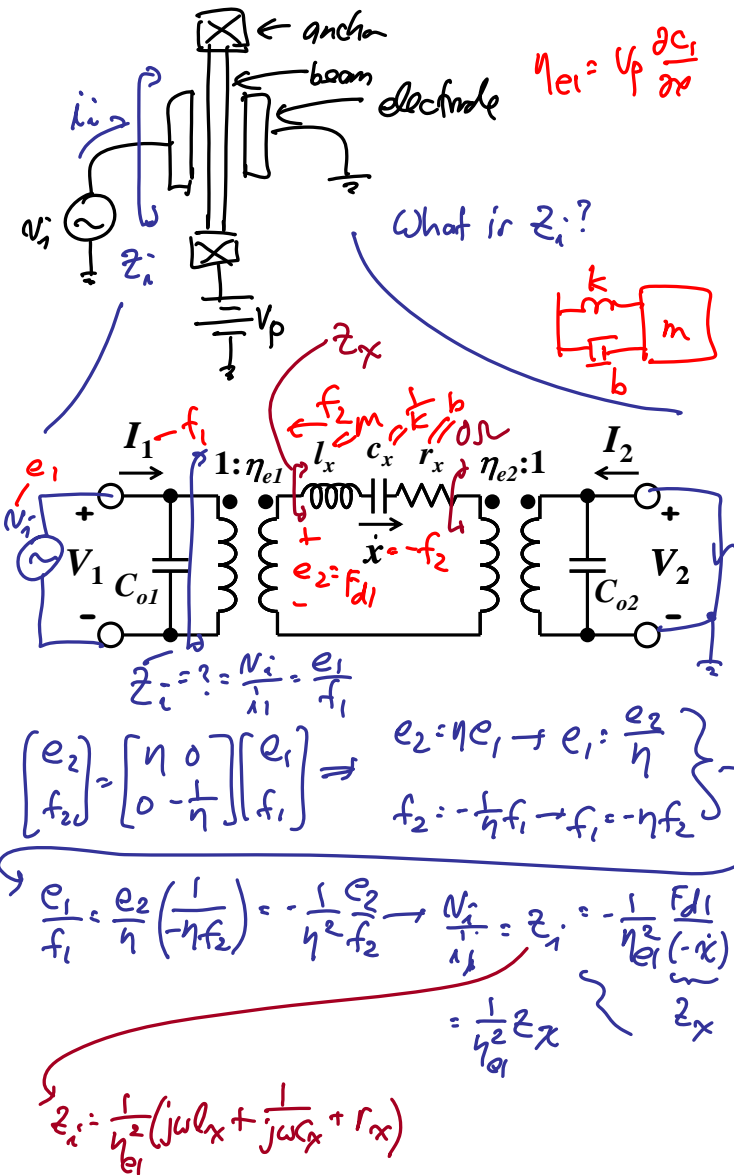 anchor
beam
electrode
η_{e1} = V_P ∂C_1/∂x
i_i
v_i
Z_i
V_P
What is Z_i?
k
m
b
Z_x
I_1 f_1
f_2 m 1/k b 0Ω
1:η_{e1} l_x c_x r_x η_{e2}:1
I_2
e_1
v_i
+ V_1 -
C_{o1}
+ e_2 = F_{d1} -
ẋ = -f_2
C_{o2}
+ V_2 -
Z_i = ? = v_i/i_1 = e_1/f_1
[e_2 f_2] = [η 0 0 -1/η] [e_1 f_1] ⇒ e_2 = ηe_1 → e_1 = e_2/η
f_2 = -1/η f_1 → f_1 = -ηf_2
e_1/f_1 = e_2/η (1/-ηf_2) = -1/η² e_2/f_2 → v_i/i_i = Z_i = -1/η_{e1}² F_{d1}/(-ẋ)
Z_x
= 1/η_{e1}² Z_x
Z_i = 1/η_{e1}² (jωl_x + 1/jωc_x + r_x)